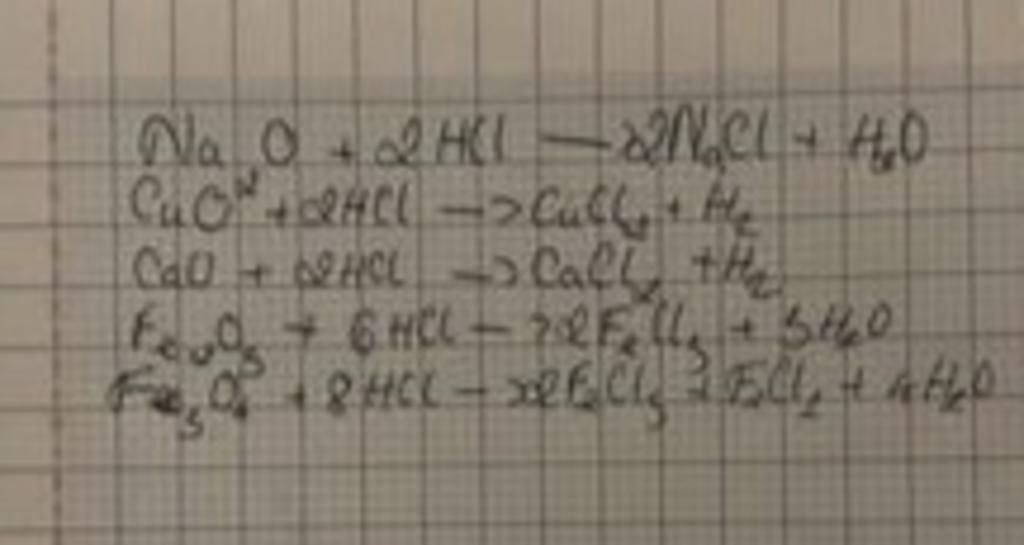 Na₂O + 2HCl → 2NaCl + H₂O
CuO + 2HCl → CuCl₂ + H₂
CaO + 2HCl → CaCl₂ + H₂
Fe₂O₃ + 6HCl → 2FeCl₃ + 3H₂O
Fe₃O₄ + 8HCl → 2FeCl₃ + FeCl₂ + 4H₂O